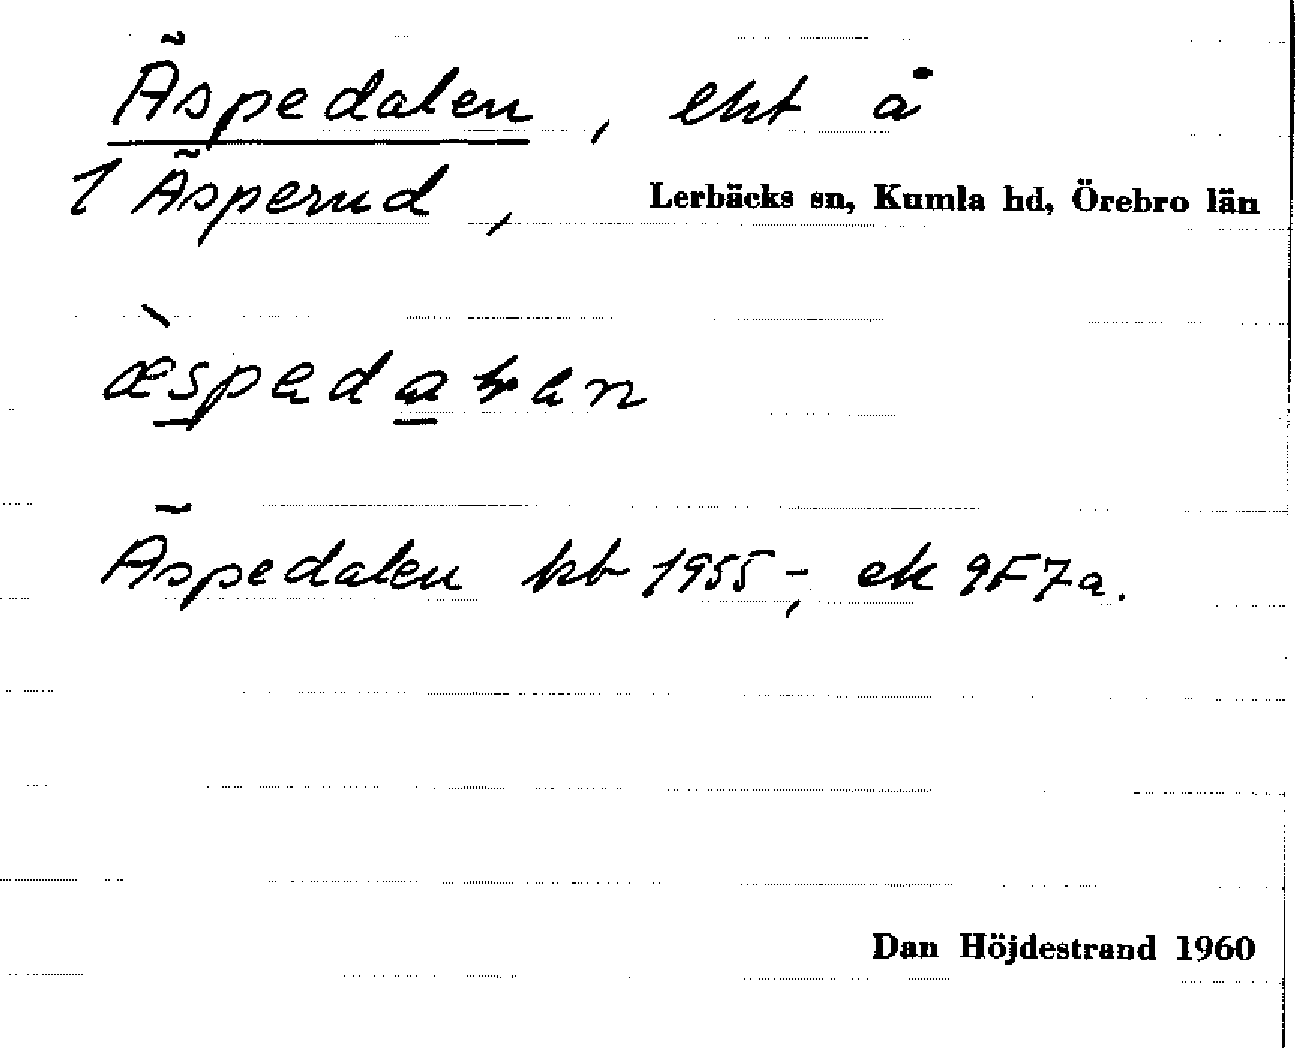 Äspedalen, eht å
1 Äsperud, Lerbäcks sn, Kumla hd, Örebro län
Äspedalen kb 1955-, ek 9F7a.
Dan Höjdestrand 1960